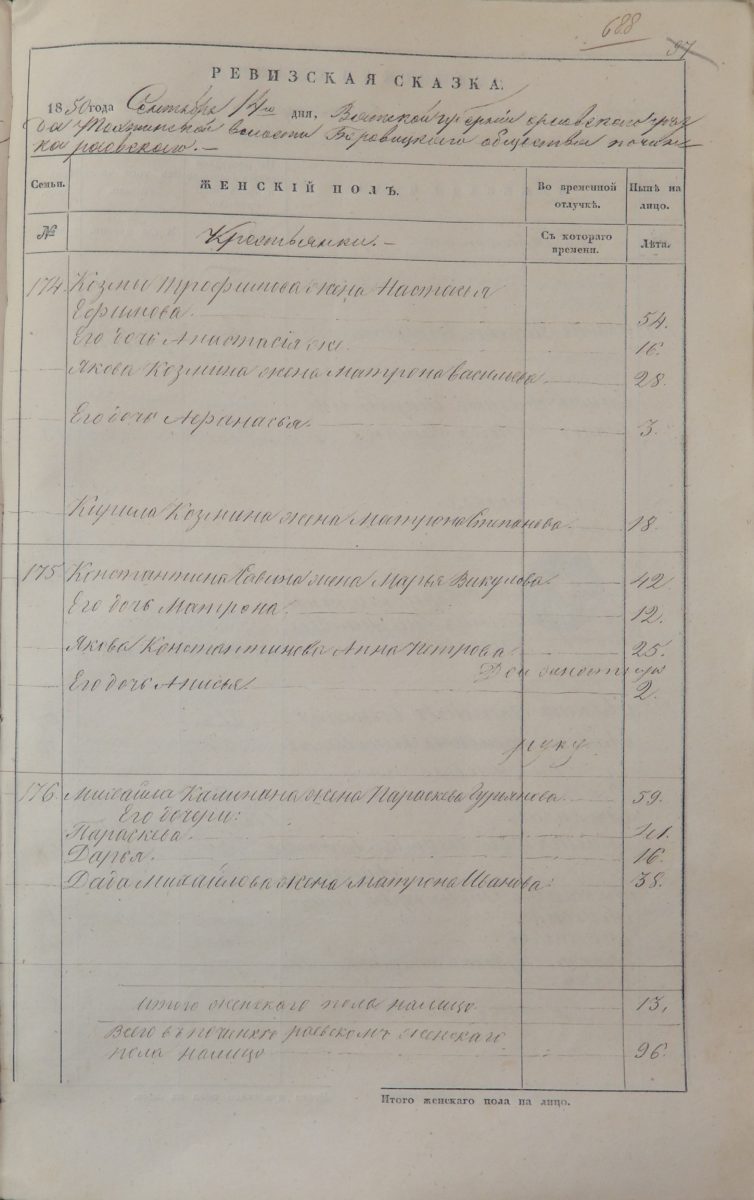 688
97
РЕВИЗСКАЯ СКАЗКА.
1850 года Сентября 14го дня, Вятской губернии орловскаго уѣз
да волости общества почин
ка раевскаго.
Семьи. ЖЕНСКІЙ ПОЛЪ. Во временной отлучкѣ. Нынѣ на лицо.
№ Крестьянки. Съ котораго времени. Лѣта.
174 Козмы Трофимова жена Настасья
Ефимова. 54.
Его дочь Анастасія 16.
Якова Козмина жена Матрона Васильева 28.
Его дочь Афанасья. 3.
Кирила Козмина жена Матрона Степанова. 18.
175 Константина Савина жена Марья Викулова. 42
Его дочь Матрона. 12.
Якова Константинова Анна Петрова. 25.
Его дочь Анисья. 2.
руку
176 Михайла Калинина жена Параскева Гурьянова 59.
Его дочери:
Параскева.
Дарья. 16.
Михайлова жена Матрона Иванова: 38.
итого женскаго пола налицо 13,
Всего въ починкѣ раевскомъ женскаго
пола налицо 96.
Итого женскаго пола на лицо.